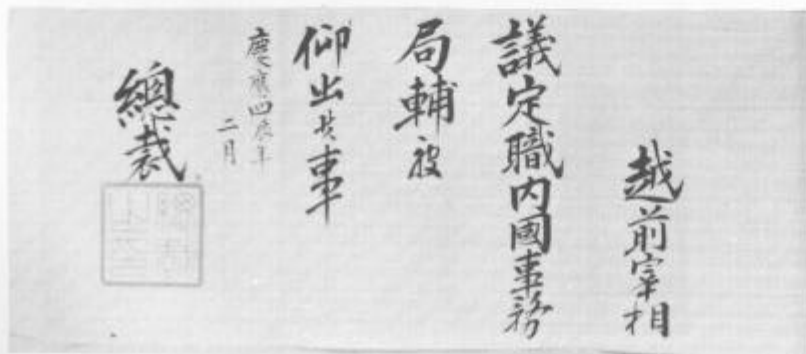 越前宰相
議定職内國事務
局輔被
仰出候事
慶應四辰年
二月
總裁